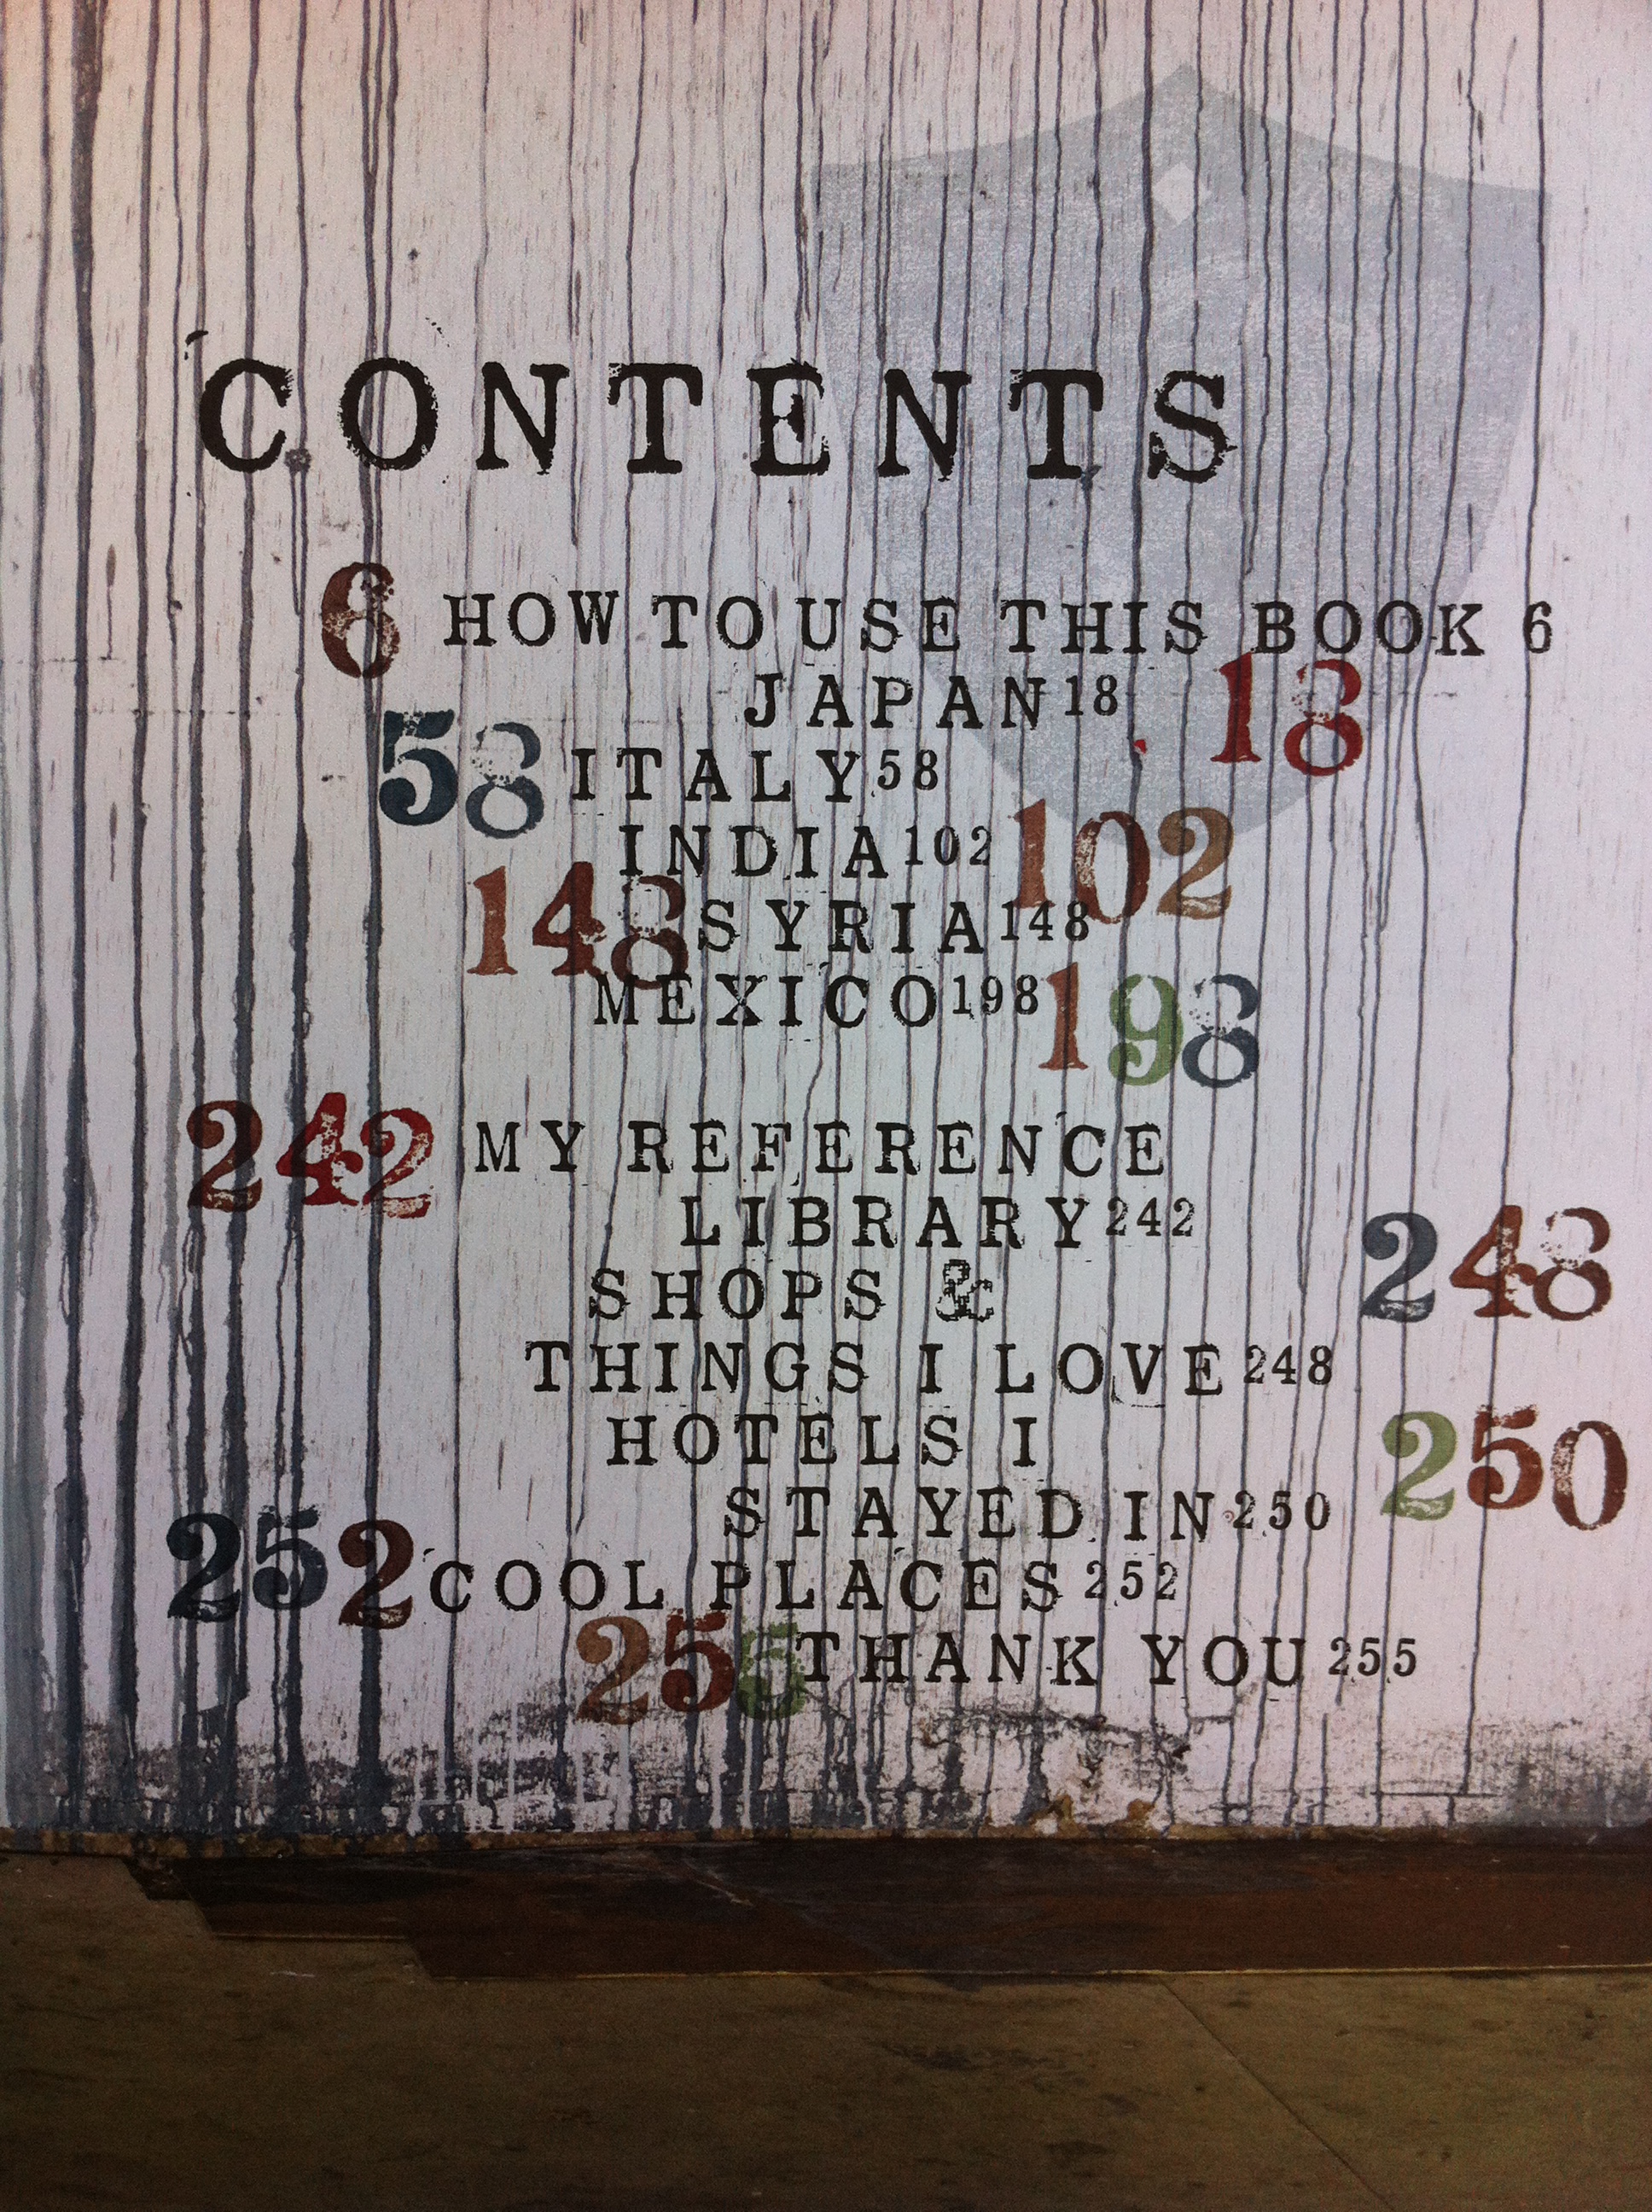 CONTENTS
6 HOW TO USE THIS BOOK 6
JAPAN 18 18
58 ITALY 58
INDIA 102 102
148 SYRIA 148
MEXICO 198 198
242 MY REFERENCE
LIBRARY 242
SHOPS & 248
THINGS I LOVE 248
HOTELS I 250
STAYED IN 250
252 COOL PLACES 252
255 THANK YOU 255